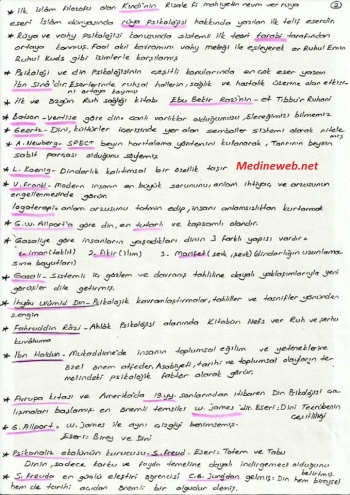 * İlk İslam filozofu olan Kindi'nin Risale fi mahiyetin nevm ver rüya
eseri İslam dünyasında rüya psikolojisi hakkında yazılan ilk telif eserdir.
2
* Rüya ve vahy psikolojisi konusunda sistemli ilk teori farabi tarafından
ortaya konmuş. Faal akıl kavramını vahy meleği ile eşleyerek er Ruhul Emin
Ruhul Kuds gibi isimlerle karşılamış
* Psikoloji ve din Psikolojisinin çeşitli konularında en çok eser yazan
İbn Sina'dır. Eserlerinde ruhsal hallerin, sağlık ve hastalık üzerine olan etkisi-
ni ortaya koymuş
* İlk ve özgün Ruh sağlığı kitabı Ebu Bekir Razi'nin - et Tıbbu'r Ruhani
* Batson - Ventise göre din: canlı varlıklar olduğumuzu, öleceğimizi bilmemiz
* Geertz - Dini, kültürler içerisinde yer alan semboller sistemi olarak nitele
miş
* A. Newberg - SPECT beyin haritalama yöntemini kullanarak, Tanrının beynin
sabit parçası olduğunu söylemiş
* L. Koenig - Dindarlık kalıtımsal bir özellik taşır
Medineweb.net
* V. Frankl - Modern insanın en büyük sorununu; anlam ihtiyacı ve arzusunun
engellenmesinde görür.
logoterapi: anlam arzusunu tatmin edip, insanı anlamsızlıktan kurtarmak
* G. W. Allport'a göre din, en tutarlı ve kapsamlı olandır.
* Gazaliye göre insanların yaşadıkları dinin 3 farklı yapısı vardır -
1. iman (taklit) 2. Fikir (ilim) 3. Marifet (zevk, şevk) (dindarlığın uzunlama-
sına boyutları)
* Gazali - Sistemli iç gözlem ve davranış tahliline dayalı yaklaşımlarıyla yeni
görüşler dile getirmiş.
* İhyau Ulumid Din - Psikolojik kavramlaştırmalar, tahliller ve tasnifler yönünden
zengin
* Fahruddin Râzi - Ahlâk Psikolojisi alanında Kitabun Nefs ver Ruh ve şerhu
kuvâhuma
* İbn Haldun - Mukaddime'de insanın toplumsal eğilim ve yeteneklerine
özel önem atfeder. Asabiyeti, tarihi ve toplumsal olayların te-
melindeki psikolojik faktör olarak görür.
* Avrupa kıtası ve Amerika'da 19.yy. sonlarından itibaren Din Psikolojisi ça-
lışmaları başlamış. en önemli temsilci W. James'dir. Eseri: Dini Tecrübenin
Çeşitliliği
* G. Allport - W. James ile aynı çizgiyi benimsemiş.
Eseri: Birey ve Dini
* Psikanaliz ekolünün kurucusu - S. Freud. Eseri: Totem ve Tabu
Dinin, sadece korku ve fayda temeline dayalı indirgemeci olduğunu
belirtmiş.
* S. Freud'a en güçlü eleştiri öğrencisi C.G. Jung'dan gelmiş: Din hem bireysel
hem de tarihi açıdan önemli bir olgudur demiş.